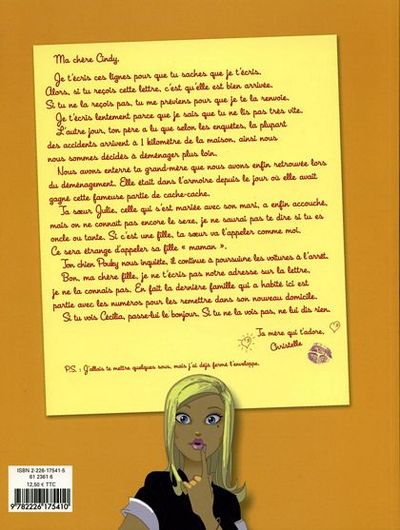 Ma chère Cindy,
Je t'écris ces lignes pour que tu saches que je t'écris.
Alors, si tu reçois cette lettre, c'est qu'elle est bien arrivée.
Si tu ne la reçois pas, tu me préviens pour que je te la renvoie.
Je t'écris lentement parce que je sais que tu ne lis pas très vite.
L'autre jour, ton père a lu que selon les enquêtes, la plupart
des accidents arrivent à 1 kilomètre de la maison, ainsi nous
nous sommes décidés à déménager plus loin.
Nous avons enterré ta grand-mère que nous avons enfin retrouvée lors
du déménagement. Elle était dans l'armoire depuis le jour où elle avait
gagné cette fameuse partie de cache-cache.
Ta sœur Julie, celle qui s'est mariée avec son mari, a enfin accouché,
mais on ne connaît pas encore le sexe, je ne saurai pas te dire si tu es
oncle ou tante. Si c'est une fille, ta sœur va l'appeler comme moi.
Ce sera étrange d'appeler sa fille « maman ».
Ton chien Pouky nous inquiète, il continue à poursuivre les voitures à l'arrêt.
Bon, ma chère fille, je ne t'écris pas notre adresse sur la lettre,
je ne la connais pas. En fait la dernière famille qui a habité ici est
partie avec les numéros pour les remettre dans son nouveau domicile.
Si tu vois Cécilia, passe-lui le bonjour. Si tu ne la vois pas, ne lui dis rien.
Ta mère qui t'adore,
Christelle
P.S. : J'allais te mettre quelques sous, mais j'ai déjà fermé l'enveloppe.
ISBN 2-226-17541-5
61 2361 6
12,50 € TTC
9 782226 175410